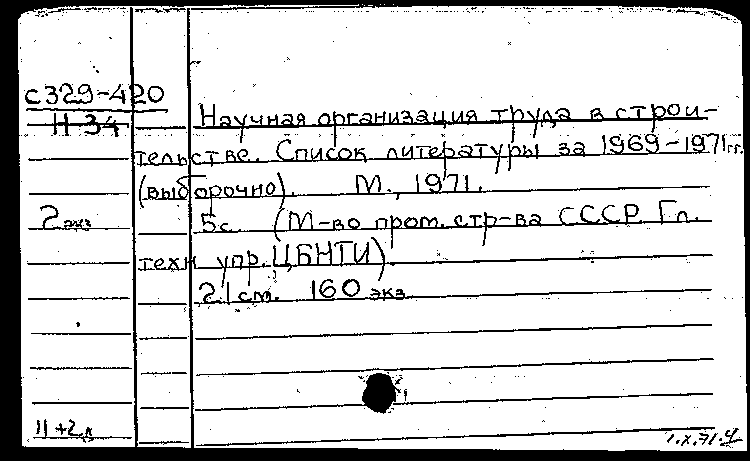 с329-420
Н 34
Научная организация труда в строи-
тельстве. Список литературы за 1969-1971гг.
(выборочно). М., 1971.
2 экз
5с. (М-во пром. стр-ва СССР. Гл.
техн упр. ЦБНТИ).
21 см. 160 экз.